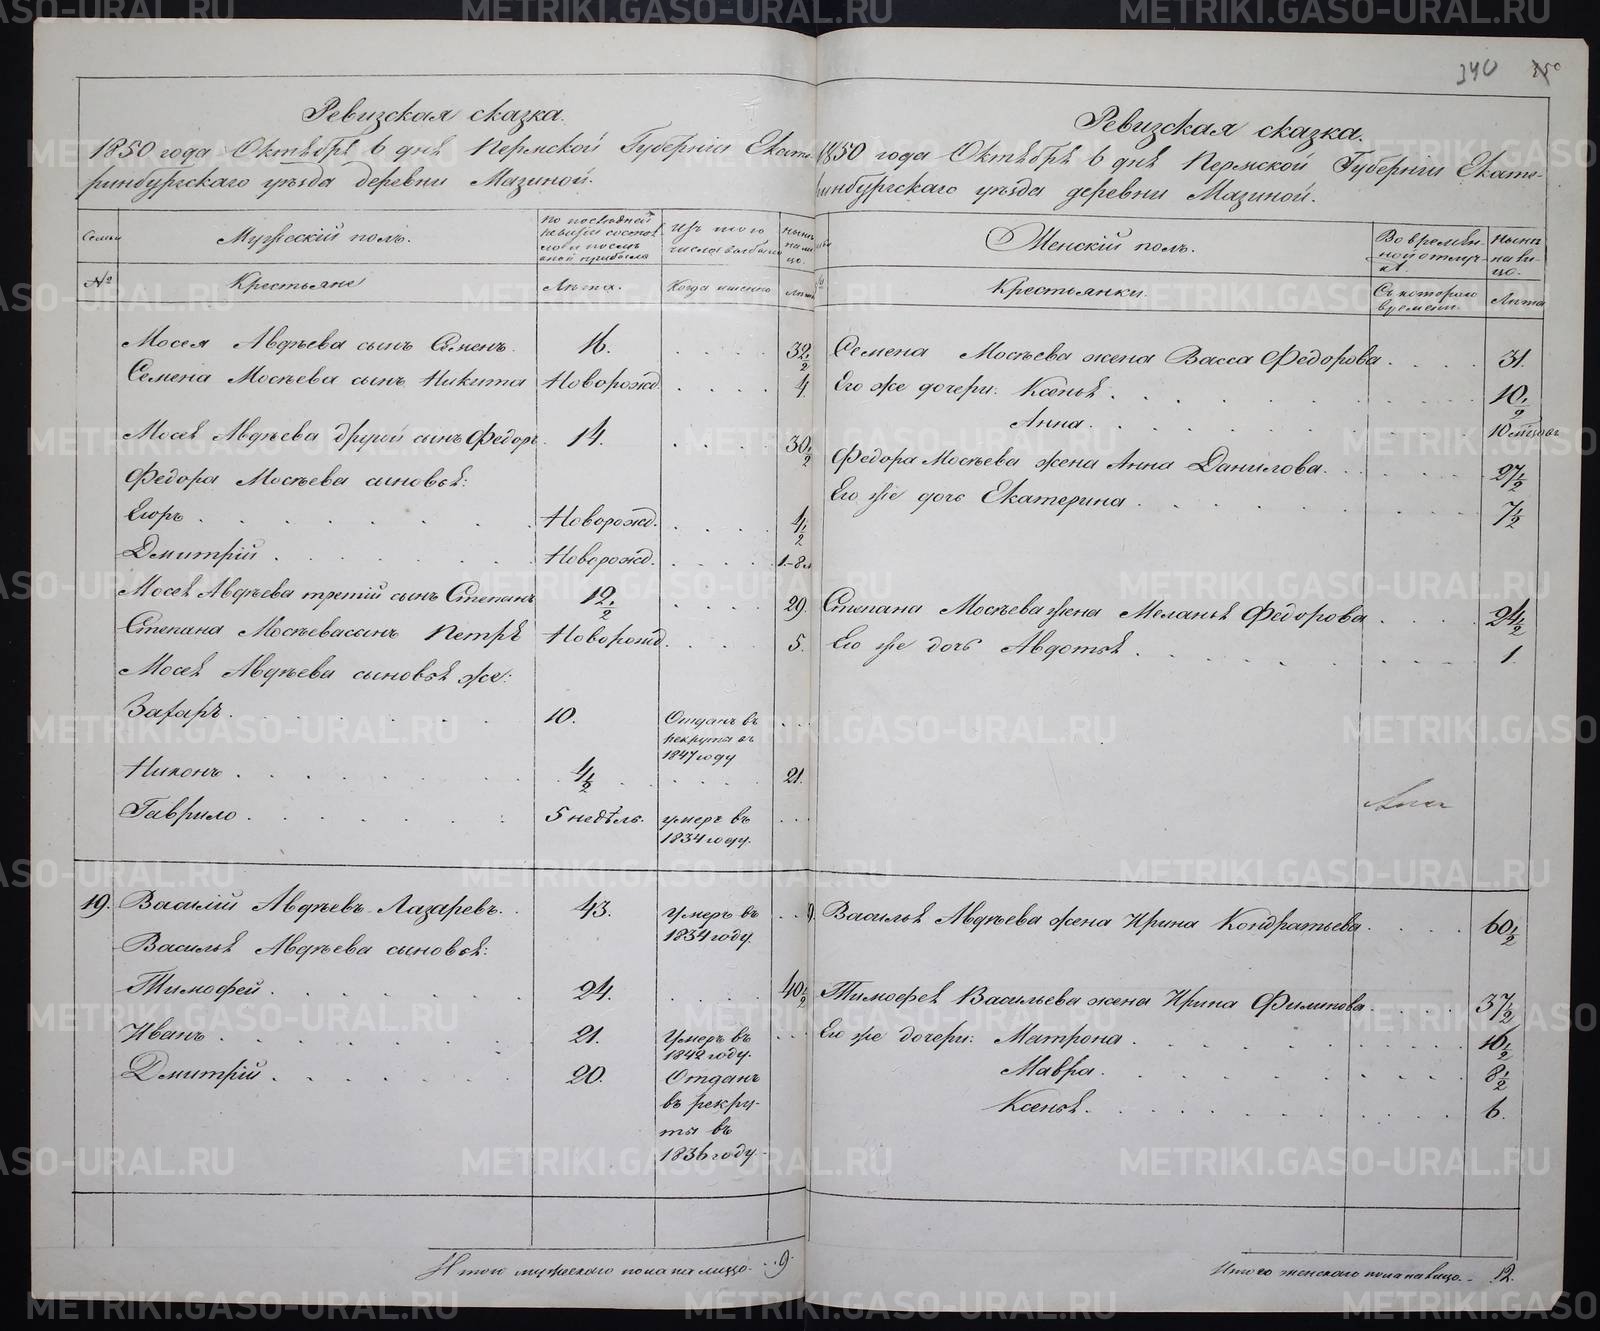 340 350
Ревизская сказка.
1850 года Октѣбрѣ 6 днѣ Пермской Губерніи Екате-
ринбургскаго уѣзда деревни Мазиной.
Семьи
Мужескій полъ.
По послѣдней ревизіи состоѣло и послѣ оной прибыло
Изъ того числа выбыло
Нынѣ на лицо.
№
Крестьяне
Лѣта.
Когда именно
Лѣта
Мосея Авдѣева сынъ Семенъ. 16. 32 1/2
Семена Мосѣева сынъ Никита Новорожд. 4.
Мосеѣ Авдѣева другой сынъ Федоръ. 14. 30 1/2
Федора Мосѣева сыновьѣ:
Егоръ Новорожд. 4 1/2
Дмитрій Новорожд. 1-8 м
Мосеѣ Авдѣева третій сынъ Степанъ 12 1/2 29.
Степана Мосѣева сынъ Петрѣ Новорожд. 5.
Мосеѣ Авдѣева сыновьѣ же:
Захаръ. 10. Отданъ въ рекруты въ 1847 году
Никонъ. 4 1/2 21.
Гаврило. 5 недѣль. умеръ въ 1834 году.
19. Василій Авдѣевъ Лазаревъ. 43. Умеръ въ 1834 году.
Васильѣ Авдѣева сыновьѣ:
Тимофей. 24. 40 1/2
Иванъ. 21. Умеръ въ 1842 году.
Дмитрій. 20. Отданъ
въ рекру-
ты въ
1836 году.
Итого мужескаго пола на лицо. 9.
Ревизская сказка.
1850 года Октѣбрѣ 6 днѣ Пермской Губерніи Екате-
ринбургскаго уѣзда деревни Мазиной.
Женскій полъ.
Во времѣнной отлучкѣ.
Нынѣ на лицо.
Крестьянки.
Съ котораго времени.
Лѣта
Семена Мосѣева жена Васса Федорова. 31.
Его же дочери: Ксеньѣ. 10 1/2
Анна. 10 мѣцовъ
Федора Мосѣева жена Анна Данилова. 27 1/2
Его же дочь Екатерина. 7 1/2
Степана Мосѣева жена Меланьѣ Федорова 24 1/2
Его же дочь Авдотьѣ. 1.
19. Васильѣ Авдѣева жена Ирина Кондратьева. 60 1/2
Тимофеѣ Васильева жена Ирина Филипова. 37 1/2
Его же дочери: Матрона. 16 1/2
Мавра. 8 1/2
Ксеньѣ. 6.
Итого женскаго пола на лицо. 12.
METRIKI.GASO-URAL.RU